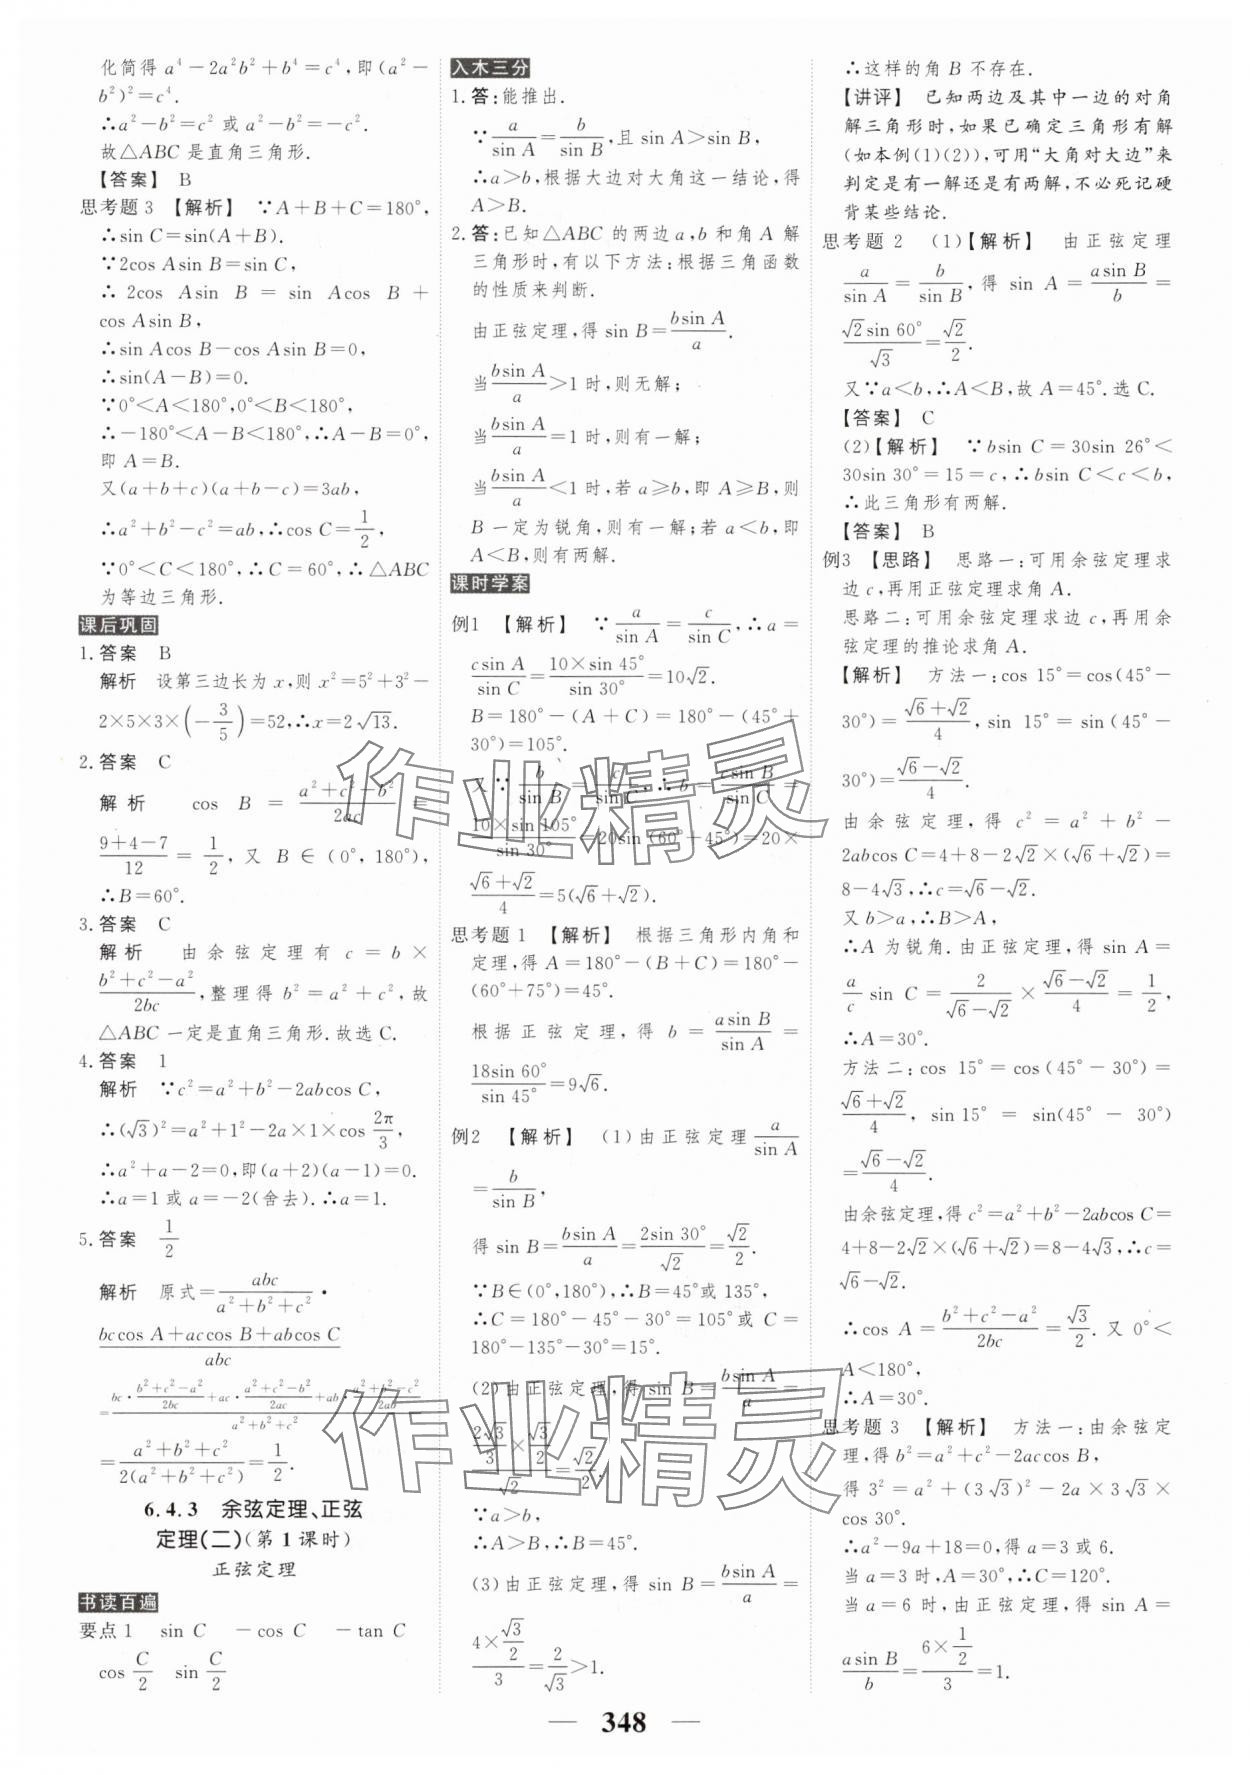 化简得 a⁴－2a²b²＋b⁴＝c⁴,即(a²－
b²)²＝c⁴.
∴a²－b²＝c² 或 a²－b²＝－c².
故△ABC 是直角三角形.
【答案】 B
思考题 3 【解析】 ∵A＋B＋C＝180°,
∴sin C＝sin(A＋B).
∵2cos Asin B＝sin C,
∴ 2cos Asin B ＝ sin Acos B ＋
cos Asin B,
∴sin Acos B－cos Asin B＝0,
∴sin(A－B)＝0.
∵0°＜A＜180°,0°＜B＜180°,
∴－180°＜A－B＜180°,∴A－B＝0°,
即 A＝B.
又(a＋b＋c)(a＋b－c)＝3ab,
∴a²＋b²－c²＝ab,∴cos C＝1/2,
∵0°＜C＜180°,∴C＝60°,∴△ABC
为等边三角形.
课后巩固
1. 答案 B
解析 设第三边长为 x,则 x²＝5²＋3²－
2×5×3×(－3/5)＝52,∴x＝2√13.
2. 答案 C
解析 cos B ＝ (a²＋c²－b²)/2ac ＝
(9＋4－7)/12 ＝ 1/2,又 B∈(0°,180°),
∴B＝60°.
3. 答案 C
解析 由余弦定理有 c ＝ b ×
(b²＋c²－a²)/2bc,整理得 b²＝a²＋c²,故
△ABC 一定是直角三角形.故选 C.
4. 答案 1
解析 ∵c²＝a²＋b²－2abcos C,
∴(√3)²＝a²＋1²－2a×1×cos 2π/3,
∴a²＋a－2＝0,即(a＋2)(a－1)＝0.
∴a＝1 或 a＝－2(舍去).∴a＝1.
5. 答案 1/2
解析 原式＝abc/(a²＋b²＋c²)·
(bccos A＋accos B＋abcos C)/abc
＝(bc·(b²＋c²－a²)/2bc＋ac·(a²＋c²－b²)/2ac＋ab·(a²＋b²－c²)/2ab)/(a²＋b²＋c²)
＝(a²＋b²＋c²)/2(a²＋b²＋c²)＝1/2.
6.4.3 余弦定理、正弦
定理(二)(第 1 课时)
正弦定理
书读百遍
要点 1 sin C －cos C －tan C
cos C/2 sin C/2
入木三分
1. 答:能推出.
∵a/sin A＝b/sin B,且 sin A＞sin B,
∴a＞b,根据大边对大角这一结论,得
A＞B.
2. 答:已知△ABC 的两边 a,b 和角 A 解
三角形时,有以下方法:根据三角函数
的性质来判断.
由正弦定理,得 sin B＝bsin A/a.
当bsin A/a＞1 时,则无解;
当bsin A/a＝1 时,则有一解;
当bsin A/a＜1 时,若 a≥b,即 A≥B,则
B 一定为锐角,则有一解;若 a＜b,即
A＜B,则有两解.
课时学案
例1 【解析】 ∵a/sin A＝c/sin C,∴a＝
csin A/sin C＝10×sin 45°/sin 30°＝10√2.
B＝180°－(A＋C)＝180°－(45°＋
30°)＝105°.
又∵b/sin B＝c/sin C,∴b＝csin B/sin C＝
10×sin 105°/sin 30°＝20sin (60°＋45°)＝20×
(√6＋√2)/4＝5(√6＋√2).
思考题 1 【解析】 根据三角形内角和
定理,得 A＝180°－(B＋C)＝180°－
(60°＋75°)＝45°.
根据正弦定理,得 b ＝ asin B/sin A ＝
18sin 60°/sin 45°＝9√6.
例2 【解析】 (1)由正弦定理a/sin A
＝b/sin B,
得 sin B＝bsin A/a＝2sin 30°/√2＝√2/2.
∵B∈(0°,180°),∴B＝45°或 135°,
∴C＝180°－45°－30°＝105°或 C＝
180°－135°－30°＝15°.
(2)由正弦定理,得 sin B＝bsin A/a＝
(2√3/3×√3/2)/√2＝√2/2.
∵a＞b,
∴A＞B,∴B＝45°.
(3)由正弦定理,得 sin B＝bsin A/a＝
(4×√3/2)/3＝2/√3＞1.
∴这样的角 B 不存在.
【讲评】 已知两边及其中一边的对角
解三角形时,如果已确定三角形有解
(如本例(1)(2)),可用“大角对大边”来
判定是有一解还是有两解,不必死记硬
背某些结论.
思考题 2 (1)【解析】 由正弦定理
a/sin A ＝ b/sin B,得 sin A ＝ asin B/b ＝
√2sin 60°/√3＝√2/2.
又∵a＜b,∴A＜B,故 A＝45°.选 C.
【答案】 C
(2)【解析】 ∵bsin C＝30sin 26°＜
30sin 30°＝15＝c,∴bsin C＜c＜b,
∴此三角形有两解.
【答案】 B
例3 【思路】 思路一:可用余弦定理求
边 c,再用正弦定理求角 A.
思路二:可用余弦定理求边 c,再用余
弦定理的推论求角 A.
【解析】 方法一:cos 15°＝cos(45°－
30°)＝(√6＋√2)/4,sin 15°＝sin(45°－
30°)＝(√6－√2)/4.
由余弦定理,得 c²＝a²＋b²－
2abcos C＝4＋8－2√2×(√6＋√2)＝
8－4√3,∴c＝√6－√2.
又 b＞a,∴B＞A,
∴A 为锐角.由正弦定理,得 sin A＝
a/c sin C＝2/(√6－√2)×(√6－√2)/4＝1/2,
∴A＝30°.
方法二:cos 15°＝cos(45°－30°)＝
(√6＋√2)/4,sin 15° ＝ sin(45° － 30°)
＝(√6－√2)/4.
由余弦定理,得 c²＝a²＋b²－2abcos C＝
4＋8－2√2×(√6＋√2)＝8－4√3,∴c＝
√6－√2.
∴cos A＝(b²＋c²－a²)/2bc＝√3/2.又 0°＜
A＜180°,
∴A＝30°.
思考题 3 【解析】 方法一:由余弦定
理,得 b²＝a²＋c²－2accos B,
得 3²＝a²＋(3√3)²－2a×3√3×
cos 30°.
∴a²－9a＋18＝0,得 a＝3 或 6.
当 a＝3 时,A＝30°,∴C＝120°.
当 a＝6 时,由正弦定理,得 sin A＝
asin B/b＝(6×1/2)/3＝1.
— 348 —
作业精灵
作业精灵